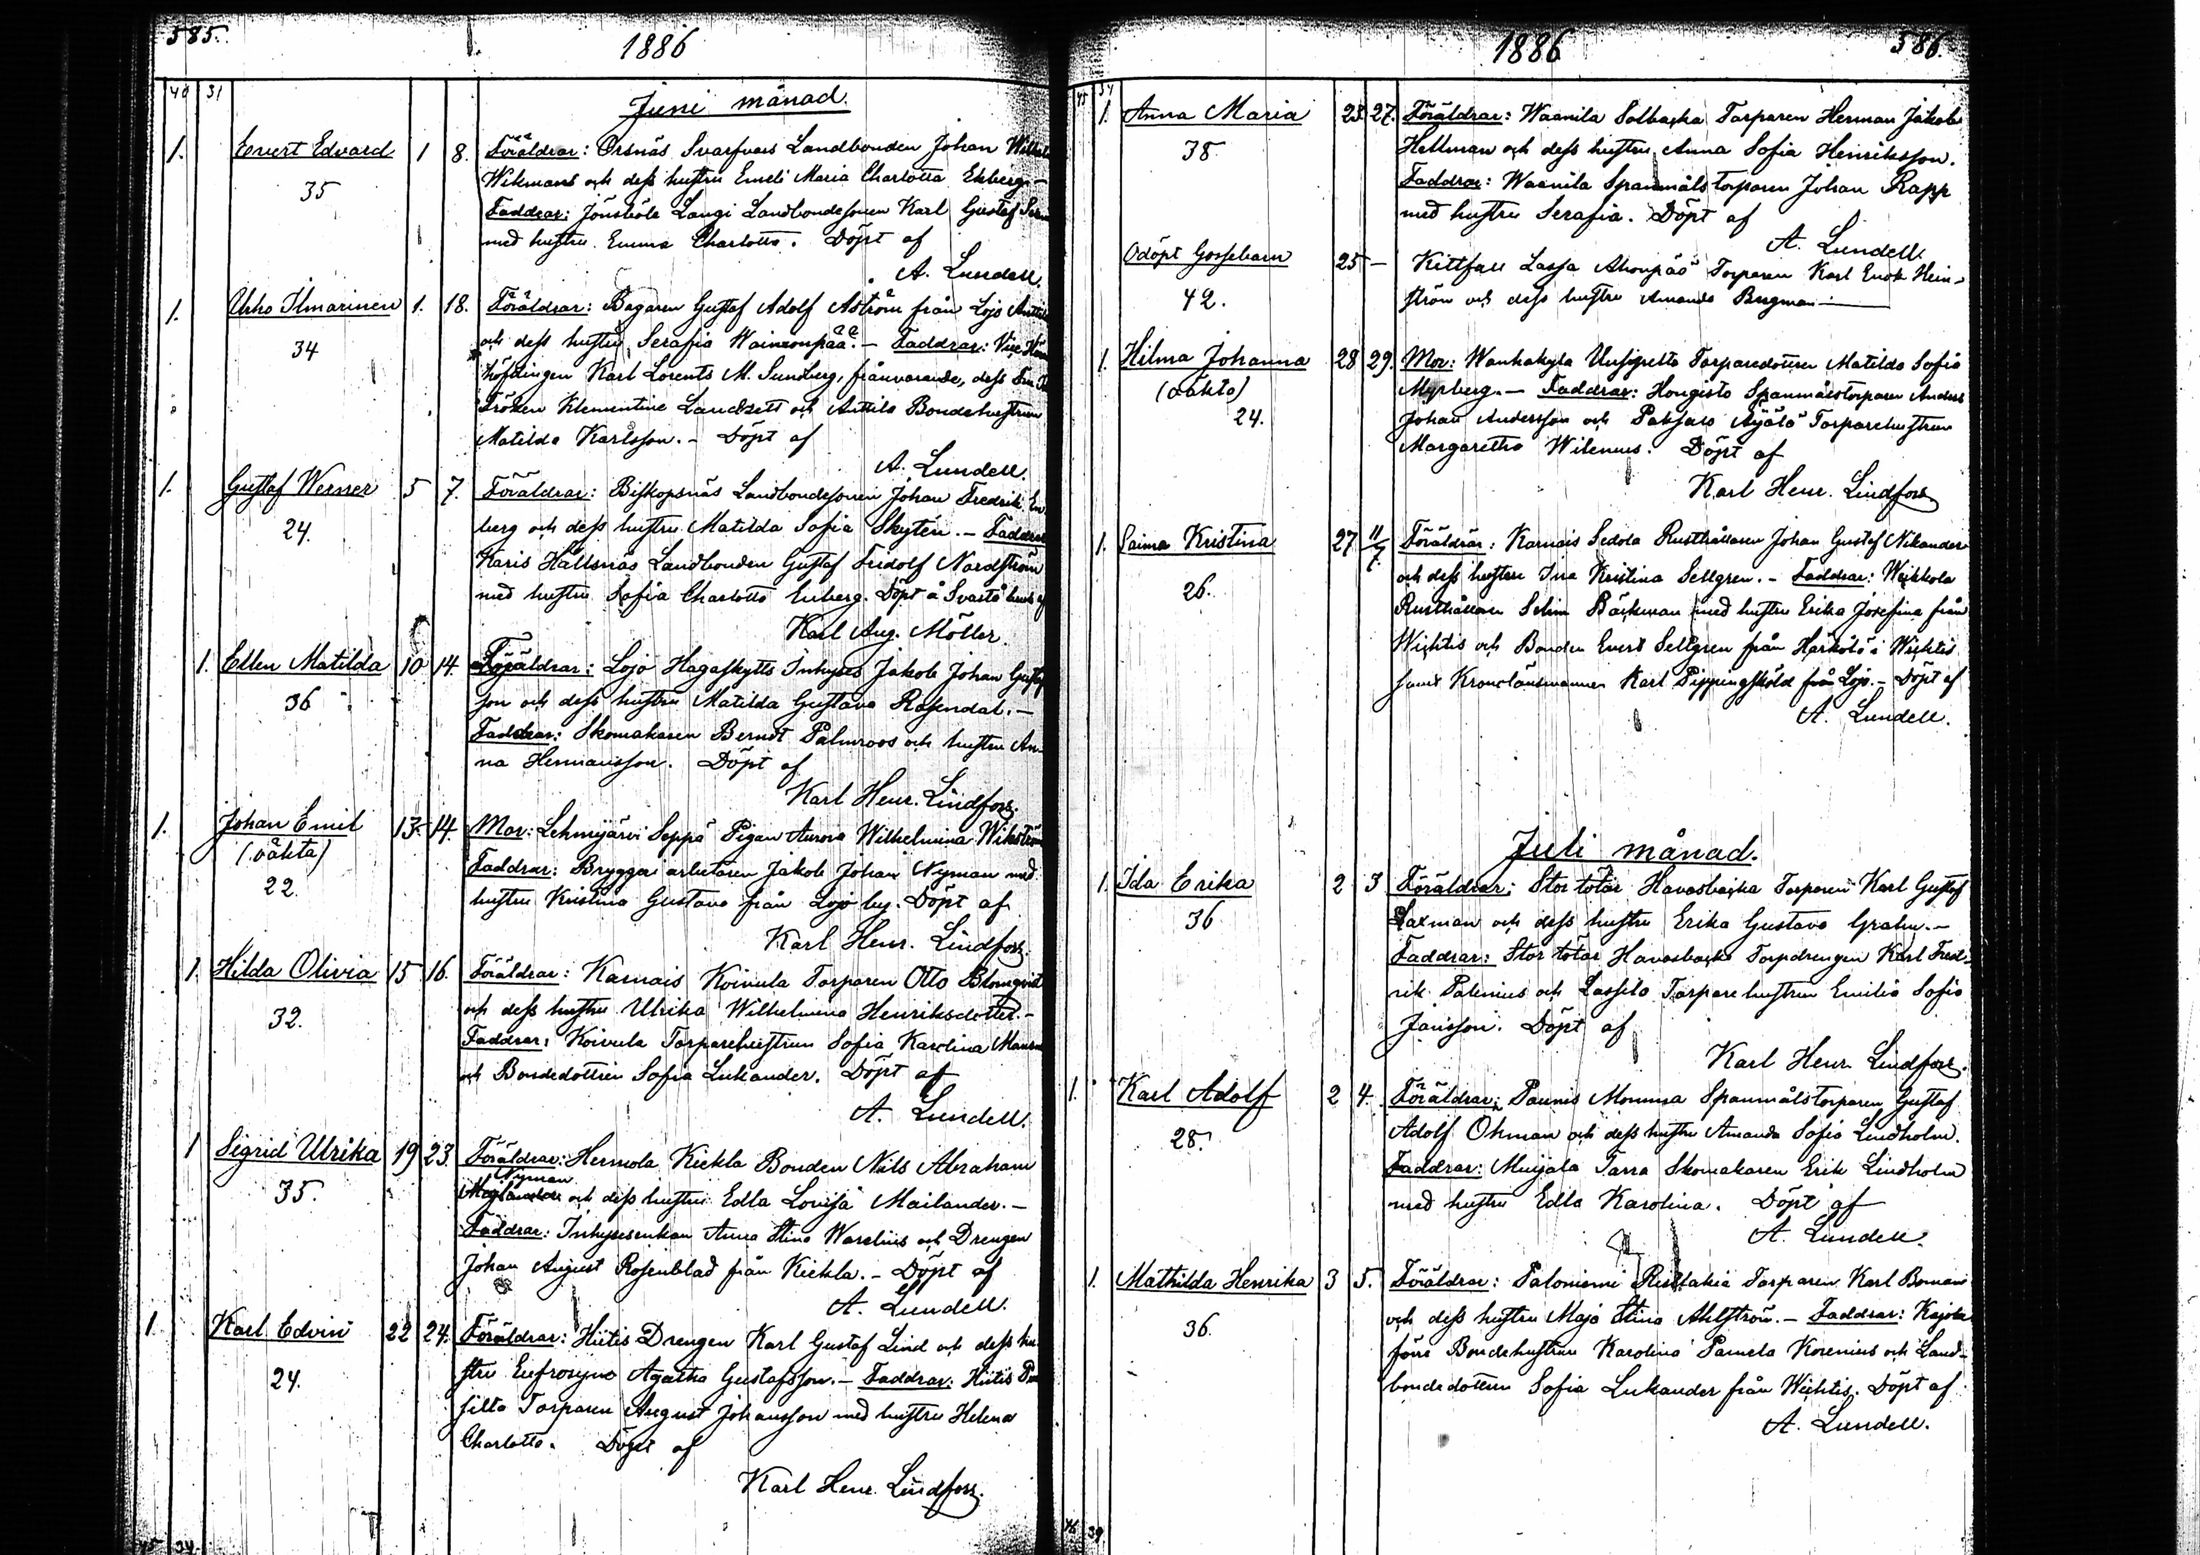 585.
1886
40 31
Juni månad.
1. Evert Edvard 1 8. Föräldrar: Orsnäs Svarfvars Landbonden Johan
35 Wikman och dess hustru Emeli Maria Charlotta Ekberg.-
Faddrar: Jönsböle Langi Landbondesonen Karl Gustaf
med hustru Emma Charlotta. Döpt af
A. Lundell.
1. Urho Ilmarinen 1. 18. Föräldrar: Bagaren Gustaf Adolf Åström från Lojo
34 och dess hustru Serafia Wainionpää. - Faddrar: Vice
höfdingen Karl Lorents M. Sundberg, frånvarande, dess
Fröken Klementine Landzett och Anttila Bondehustrun
Matilda Karlsson. - Döpt af
A. Lundell.
1. Gustaf Werner 5 7. Föräldrar: Biskopsnäs Landbondesonen Johan Fredrik En
24. berg och dess hustru Matilda Sofia Skytén. - Faddrar
Karis Hållsnäs Landbonden Gustaf Fridolf Nordström
med hustru Sofia Charlotta Enberg. Döpt å Svartå
Karl Aug. Möller.
1. Ellen Matilda 10 14. Föräldrar: Lojo Hagaskytts Inhyses Jakob Johan Gustaf
36 son och dess hustru Matilda Gustava Rosendal. -
Faddrar: Skomakaren Berndt Palmroos och hustru An-
na Hermansson. Döpt af
Karl Henr. Lindfors.
1. Johan Emil 13. 14. Mor: Lehmijärvi Seppä Pigan Aurora Wilhelmina Wikström
(oäkta) Faddrar: Bryggeri arbetaren Jakob Johan Nyman med
22. hustru Kristina Gustava från Lojo by. Döpt af
Karl Henr. Lindfors.
1. Hilda Olivia 15 16. Föräldrar: Karnais Koivula Torparen Otto Blomqvist
32. och dess hustru Ulrika Wilhelmina Henriksdotter. -
Faddrar: Koivula Torparehustrun Sofia Karolina
och Bondedottren Sofia Lukander. Döpt af
A. Lundell.
1 Sigrid Ulrika 19 23. Föräldrar: Hermola Kiekla Bonden Nils Abraham
Nyman
35. och dess hustru Edla Lovisa Mailander. -
Faddrar: Inhysesenkan Anna Stina Warelius och Drengen
Johan August Rosenblad från Kiekla. - Döpt af
A. Lundell.
1. Karl Edvin 22 24. Föräldrar: Hiitis Drengen Karl Gustaf Lind och dess hu-
24. stru Eufrosyne Agatha Gustafsson. - Faddrar: Hiitis
silta Torparen August Johansson med hustru Helena
Charlotta. Döpt af
Karl Henr. Lindfors.
45 34
1886
586.
45 34
1. Anna Maria 23 27. Föräldrar: Waanila Solbacka Torparen Herman Jakob
38. Hellman och dess hustru Anna Sofia Henriksson.
Faddrar: Waanila Spanmålstorparen Johan Rapp
med hustru Serafia. Döpt af
A. Lundell.
Odöpt Gossebarn 25 - Kittfall Lassa Ahonpää Torparen Karl Enok Hein-
42. ström och dess hustru Amanda Bergman
1. Hilma Johanna 28 29. Mor: Wanhakylä Torparedottren Matilda Sofia
(oäkta) Myrberg. - Faddrar: Hongisto Spanmålstorparen Anders
24. Johan Andersson och Paksalo Äijälä Torparehustrun
Margaretha Wilenius. Döpt af
Karl Henr. Lindfors
1. Saima Kristina 27 11/7. Föräldrar: Karnais Sedola Rusthållaren Johan Gustaf Nikander
26. och dess hustru Ina Kristina Sellgren. - Faddrar: Weikkola
Rusthållaren Selim Bäckman med hustru Erika Josefina från
Wichtis och Bonden Evert Sellgren från Härkälä i Wichtis
samt Kronolänsmannen Karl Pippingsköld från Lojo. - Döpt af
A. Lundell.
Juli månad.
1. Ida Erika 2 3 Föräldrar: Stor tötar Havasbacka Torparen Karl Gustaf
36 Laxman och dess hustru Erika Gustava Grahn. -
Faddrar: Stor tötar Havasbacka Torpdrengen Karl Fred-
rik Palenius och Lassila Torparehustrun Emilia Sofia
Jansson. Döpt af
Karl Henr. Lindfors.
1. Karl Adolf 2 4. Föräldrar: Paunis Spanmålstorparen Gustaf
28. Adolf Öhman och dess hustru Amanda Sofia Lindholm.
Faddrar: Muijala Tarra Skomakaren Erik Lindholm
med hustru Edla Karolina. Döpt af
A. Lundell.
1. Mathilda Henrika 3 5. Föräldrar: Paloniemi Ristakia Torparen Karl Boman
36. och dess hustru Maja Stina Ahlström. - Faddrar:
Bondehustrun Karolina Pamela Korenius och Land-
bondedottren Sofia Lukander från Wichtis. Döpt af
A. Lundell.
46 39